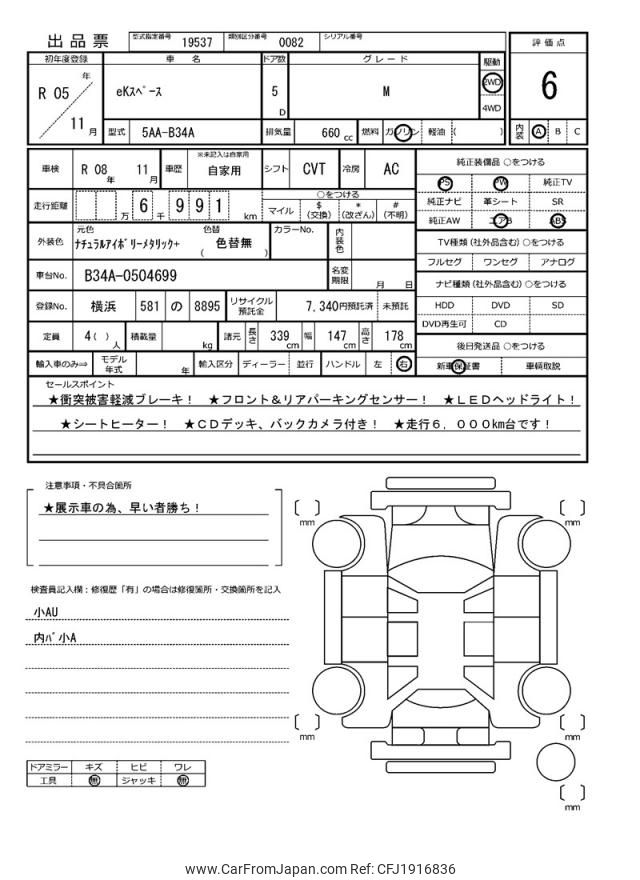 出品票
型式指定番号 19537 類別区分番号 0082 シリアル番号
初年度登録 車名 ドア数 グレード 駆動 評価点
R 05 年 11 月 eKｽﾍﾟｰｽ 5 D M 2WD 4WD 6
型式 5AA-B34A 排気量 660 cc 燃料 ガソリン 軽油 ( ) 内装 A B C
車検 R 08 年 11 月 車歴 ※未記入は自家用 自家用 シフト CVT 冷房 AC
走行距離 万 6 千 9 9 1 km
○をつける
マイル $(交換) *(改ざん) #(不明)
外装色 元色 ﾅﾁｭﾗﾙｱｲﾎﾞﾘｰﾒﾀﾘｯｸ+ 色替 ( 色替無 ) カラーNo. 内装色
車台No. B34A-0504699 名変期限 月 日
登録No. 横浜 581 の 8895 リサイクル預託金 7,340円預託済 未預託
定員 4( ) 人 積載量 kg 諸元 長さ 339 cm 幅 147 cm 高さ 178 cm
輸入車のみ⇒ モデル年式 年 輸入区分 ディーラー 並行 ハンドル 左 右
純正装備品 ○をつける
PS PW 純正TV
純正ナビ 革シート SR
純正AW エアB ABS
TV種類 (社外品含む) ○をつける
フルセグ ワンセグ アナログ
ナビ種類 (社外品含む) ○をつける
HDD DVD SD
DVD再生可 CD
後日発送品 ○をつける
新車保証書 車輌取説
セールスポイント
★衝突被害軽減ブレーキ！ ★フロント＆リアパーキングセンサー！ ★ＬＥＤヘッドライト！
★シートヒーター！ ★ＣＤデッキ、バックカメラ付き！ ★走行６，０００km台です！
注意事項・不具合箇所
★展示車の為、早い者勝ち！
検査員記入欄：修復歴「有」の場合は修復箇所・交換箇所を記入
小AU
内ﾊﾞ小A
mm mm
mm mm
mm
ドアミラー キズ ヒビ ワレ
工具 無 ジャッキ 無
www.CarFromJapan.com Ref: CFJ1916836